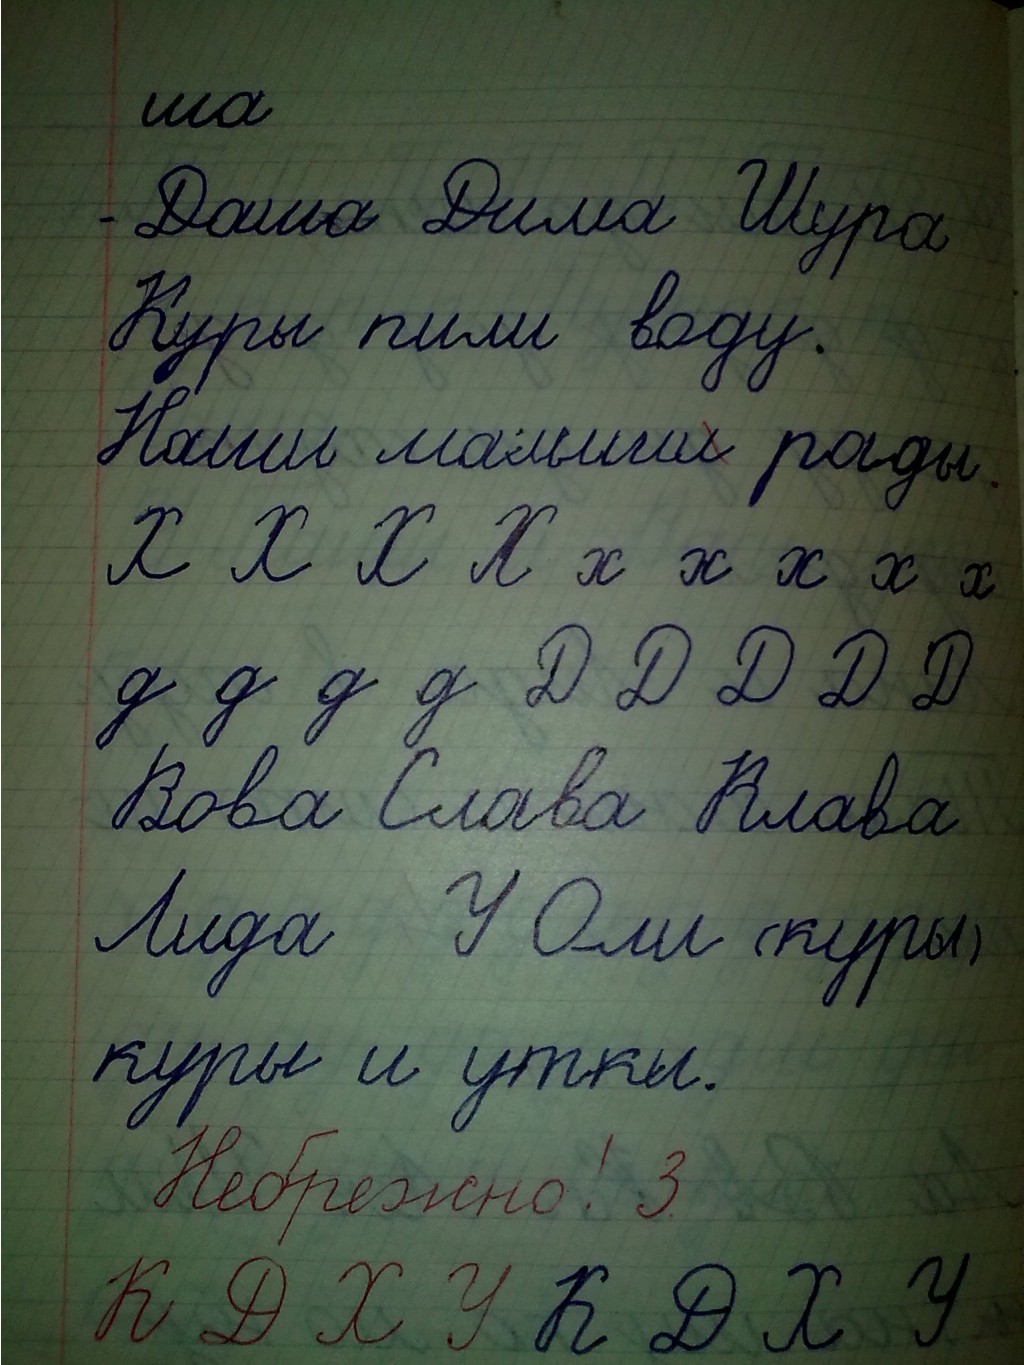 ша
- Даша Дима Шура
Куры пили воду.
Наши малыши рады.
Х Х Х Х х х х х х
д д д д Д Д Д Д Д
Вова Слава Клава
Лида У Оли (куры)
куры и утки.
Небрежно! 3
К Д Х У К Д Х У